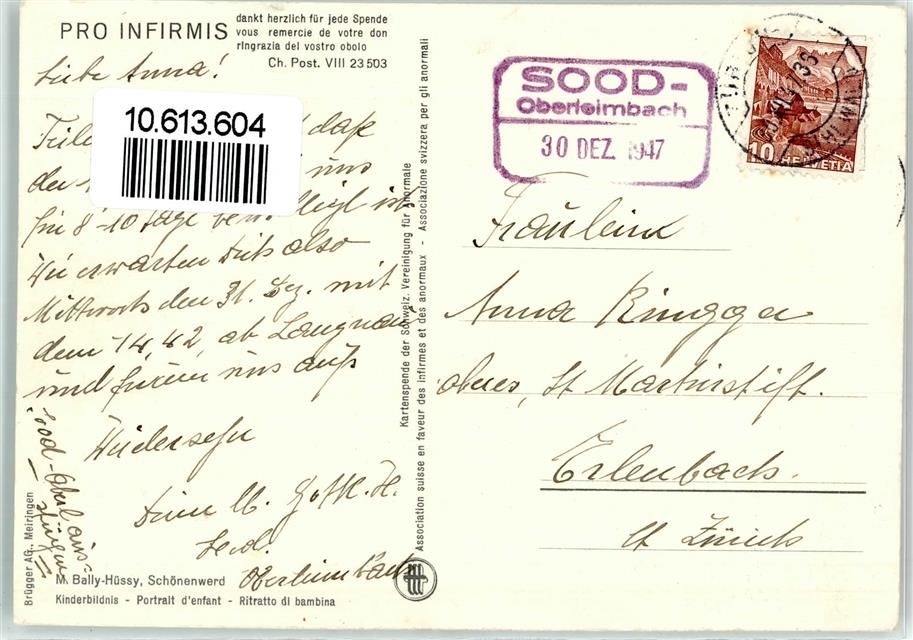 PRO INFIRMIS
dankt herzlich für jede Spende
vous remercie de votre don
ringrazia del vostro obolo
Ch. Post. VIII 23 503
Liebe Anna!
daß
10.613.604
der uns
für 8-10 Tage ist
Wir erwarten Dich also
Mittwoch den 31. Dez. mit
dem 14,42 ab Langnau
und freuen uns aufs
Wiedersehn
Sood-Oberl
Oberleimbach
M. Bally-Hüssy, Schönenwerd
Kinderbildnis - Portrait d'enfant - Ritratto di bambina
Brügger AG., Meiringen
Kartenspende der Schweiz. Vereinigung für Anormale
Association suisse en faveur des infirmes et des anormaux - Associazione svizzera per gli anormali
SOOD-
Oberleimbach
30 DEZ. 1947
10 HELVETIA
Fräulein
Anna Ringger
St Martinstift.
Erlenbach.
Kt Zürich